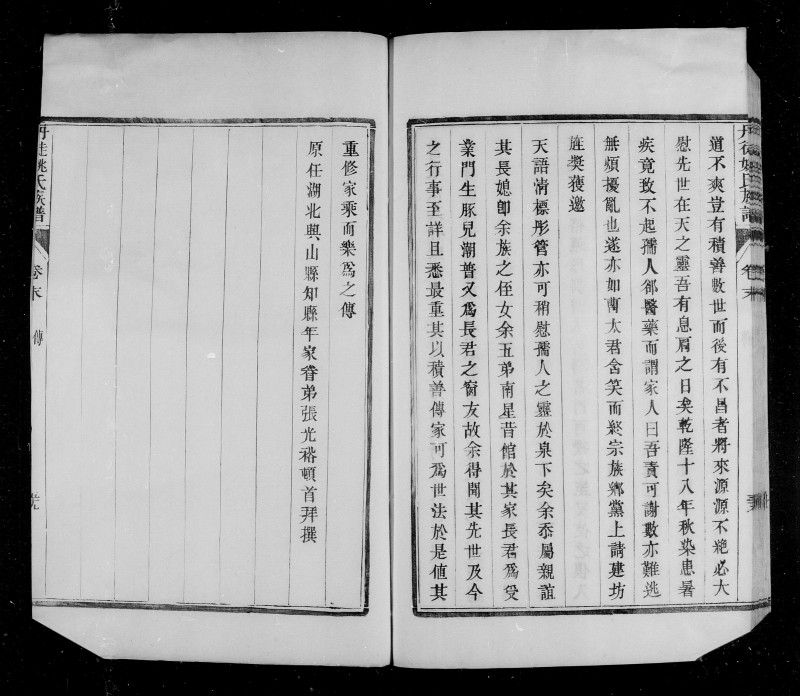 道不爽豈有積善數世而後有不昌者將來源源不絕必大
慰先世在天之靈吾有息肩之日矣乾隆十八年秋染患暑
疾竟致不起孺人卻醫藥而謂家人曰吾責可謝數亦難逃
無煩擾亂也遂亦如曹太君含笑而終宗族鄉黨上請建坊
旌獎獲邀
天語清標彤管亦可稍慰孺人之靈於泉下矣余忝屬親誼
其長媳卽余族之侄女余五弟南星昔館於其家長君為受
業門生豚兒潮普又爲長君之窗友故余得聞其先世及今
之行事至詳且悉最重其以積善傳家可爲世法於是值其
重修家乘而樂爲之傳
原任湖北興山縣知縣年家眷弟張光裕頓首拜撰
丹徒姚氏族譜
卷末
傳